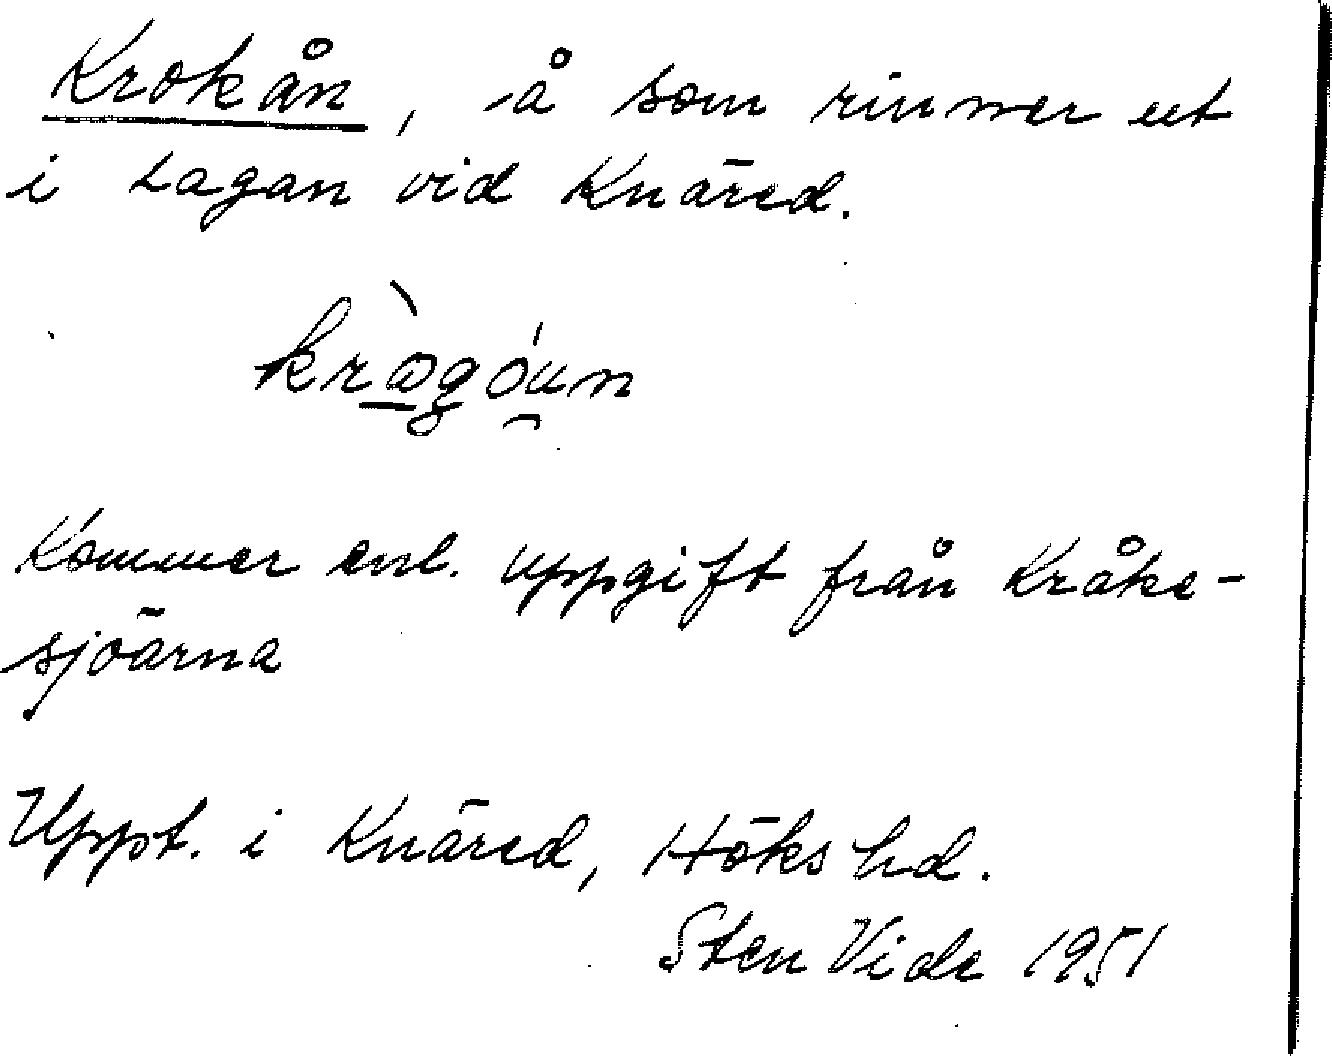 Krokån, å som rinner ut
i Lagan vid Knäred.
kràgóun
Kommer enl. uppgift från Kråke-
sjöarna
Uppt. i Knäred, Höks hd.
Sten Vide 1951